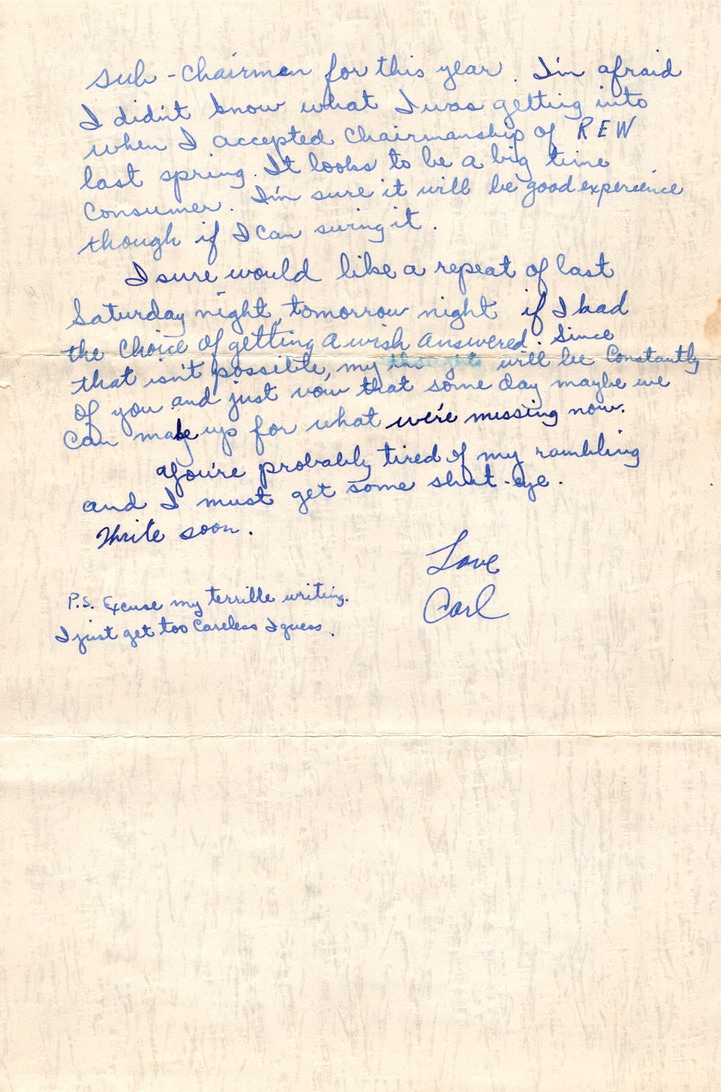 sub-chairman for this year. I'm afraid
I didn't know what I was getting into
when I accepted Chairmanship of REW
last spring. It looks to be a big time
Consumer. I'm sure it will be good experience
though if I can swing it.
I sure would like a repeat of last
Saturday night, tomorrow night if I had
the choice of getting a wish answered. Since
that isn't possible, my thoughts will be constantly
of you and just vow that some day maybe we
can make up for what we're missing now.
You're probably tired of my rambling
and I must get some shut-eye.
Write soon.
Love
Carl
P.S. Excuse my terrible writing.
I just get too careless I guess.